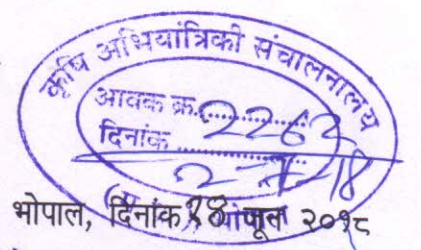 कृषि अभियांत्रिकी संचालनालय
आवक क्र. 2262
दिनांक 2-7-18
भोपाल, दिनांक जून २०१८